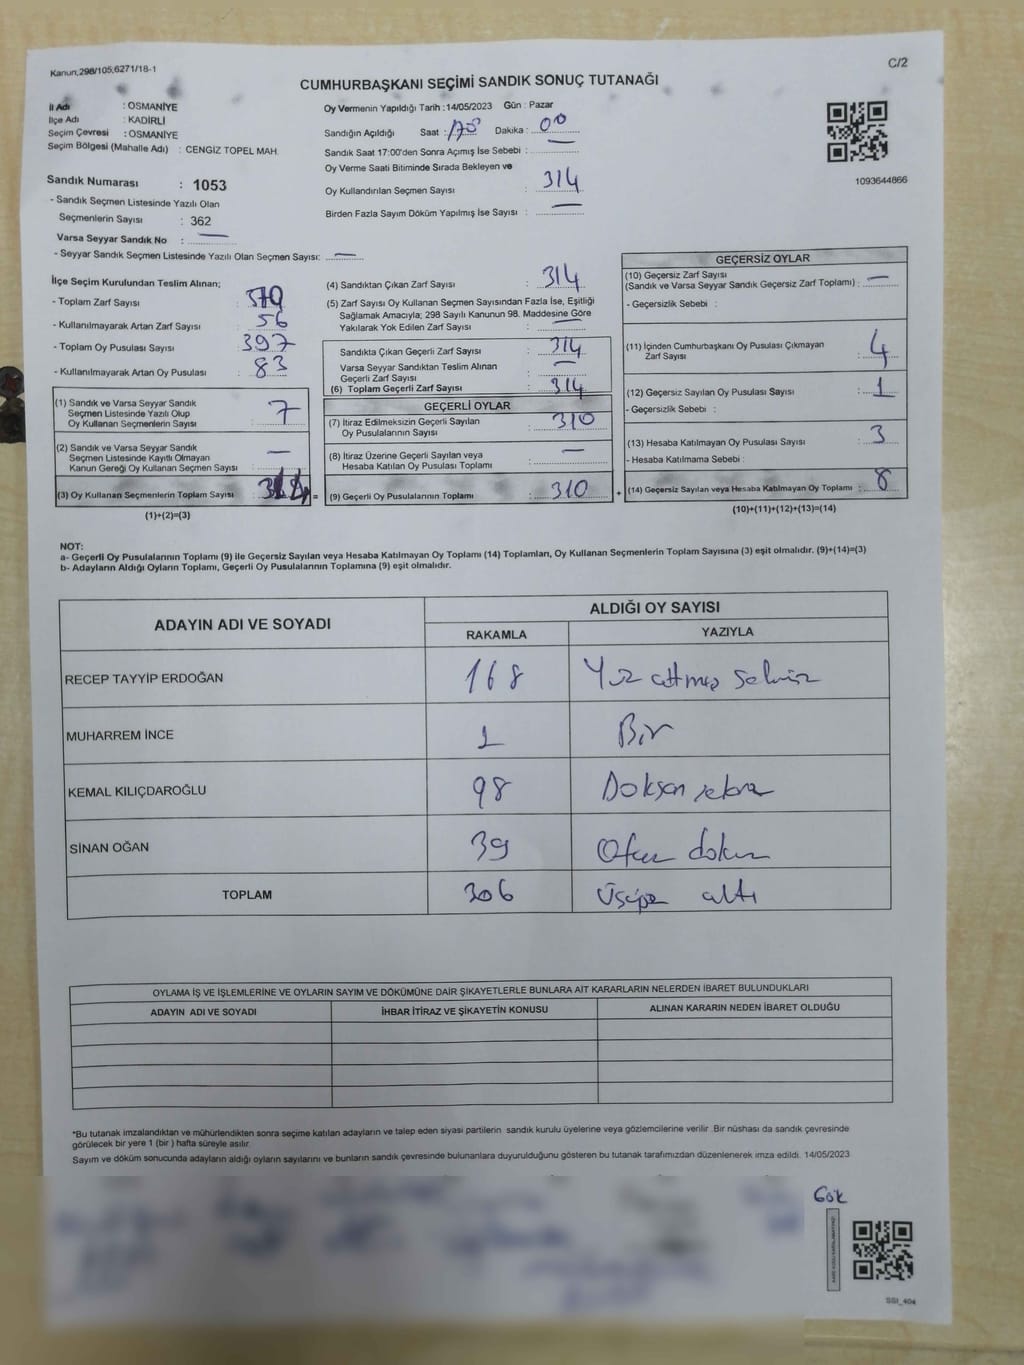 Kanun;298/105;6271/18-1
C/2
CUMHURBAŞKANI SEÇİMİ SANDIK SONUÇ TUTANAĞI
İl Adı : OSMANİYE
İlçe Adı : KADİRLİ
Seçim Çevresi : OSMANİYE
Seçim Bölgesi (Mahalle Adı) : CENGİZ TOPEL MAH.
Sandık Numarası : 1053
- Sandık Seçmen Listesinde Yazılı Olan
Seçmenlerin Sayısı : 362
Varsa Seyyar Sandık No : —
- Seyyar Sandık Seçmen Listesinde Yazılı Olan Seçmen Sayısı: —
Oy Vermenin Yapıldığı Tarih :14/05/2023 Gün : Pazar
Sandığın Açıldığı Saat : Dakika : 00
Sandık Saat 17:00'den Sonra Açımış İse Sebebi : —
Oy Verme Saati Bitiminde Sırada Bekleyen ve
Oy Kullandırılan Seçmen Sayısı : 314
Birden Fazla Sayım Döküm Yapılmış İse Sayısı : —
1093644866
İlçe Seçim Kurulundan Teslim Alınan;
- Toplam Zarf Sayısı :
- Kullanılmayarak Artan Zarf Sayısı : 56
- Toplam Oy Pusulası Sayısı : 397
- Kullanılmayarak Artan Oy Pusulası : 83
(1) Sandık ve Varsa Seyyar Sandık
Seçmen Listesinde Yazılı Olup
Oy Kullanan Seçmenlerin Sayısı : 7
(2) Sandık ve Varsa Seyyar Sandık
Seçmen Listesinde Kayıtlı Olmayan
Kanun Gereği Oy Kullanan Seçmen Sayısı : —
(3) Oy Kullanan Seçmenlerin Toplam Sayısı : =
(1)+(2)=(3)
(4) Sandıktan Çıkan Zarf Sayısı : 314
(5) Zarf Sayısı Oy Kullanan Seçmen Sayısından Fazla İse, Eşitliği
Sağlamak Amacıyla; 298 Sayılı Kanunun 98. Maddesine Göre
Yakılarak Yok Edilen Zarf Sayısı : —
Sandıkta Çıkan Geçerli Zarf Sayısı : 314
Varsa Seyyar Sandıktan Teslim Alınan
Geçerli Zarf Sayısı : —
(6) Toplam Geçerli Zarf Sayısı : 314
GEÇERLİ OYLAR
(7) İtiraz Edilmeksizin Geçerli Sayılan
Oy Pusulalarının Sayısı : 310
(8) İtiraz Üzerine Geçerli Sayılan veya
Hesaba Katılan Oy Pusulası Toplamı : —
(9) Geçerli Oy Pusulalarının Toplamı : 310 +
GEÇERSİZ OYLAR
(10) Geçersiz Zarf Sayısı
(Sandık ve Varsa Seyyar Sandık Geçersiz Zarf Toplamı) : —
- Geçersizlik Sebebi :
(11) İçinden Cumhurbaşkanı Oy Pusulası Çıkmayan
Zarf Sayısı : 4
(12) Geçersiz Sayılan Oy Pusulası Sayısı : 1
- Geçersizlik Sebebi :
(13) Hesaba Katılmayan Oy Pusulası Sayısı : 3
- Hesaba Katılmama Sebebi :
(14) Geçersiz Sayılan veya Hesaba Katılmayan Oy Toplamı : 8
(10)+(11)+(12)+(13)=(14)
NOT:
a- Geçerli Oy Pusulalarının Toplamı (9) ile Geçersiz Sayılan veya Hesaba Katılmayan Oy Toplamı (14) Toplamları, Oy Kullanan Seçmenlerin Toplam Sayısına (3) eşit olmalıdır. (9)+(14)=(3)
b- Adayların Aldığı Oyların Toplamı, Geçerli Oy Pusulalarının Toplamına (9) eşit olmalıdır.
ADAYIN ADI VE SOYADI ALDIĞI OY SAYISI
RAKAMLA YAZIYLA
RECEP TAYYİP ERDOĞAN 168 Yüz altmış sekiz
MUHARREM İNCE 1 Bir
KEMAL KILIÇDAROĞLU 98 Doksan sekiz
SİNAN OĞAN 39 Otuz dokuz
TOPLAM 306 Üçyüz altı
OYLAMA İŞ VE İŞLEMLERİNE VE OYLARIN SAYIM VE DÖKÜMÜNE DAİR ŞİKAYETLERLE BUNLARA AİT KARARLARIN NELERDEN İBARET BULUNDUKLARI
ADAYIN ADI VE SOYADI İHBAR İTİRAZ VE ŞİKAYETİN KONUSU ALINAN KARARIN NEDEN İBARET OLDUĞU
*Bu tutanak imzalandıktan ve mühürlendikten sonra seçime katılan adayların ve talep eden siyasi partilerin sandık kurulu üyelerine veya gözlemcilerine verilir .Bir nüshası da sandık çevresinde
görülecek bir yere 1 (bir ) hafta süreyle asılır.
Sayım ve döküm sonucunda adayların aldığı oyların sayılarını ve bunların sandık çevresinde bulunanlara duyurulduğunu gösteren bu tutanak tarafımızdan düzenlenerek imza edildi. 14/05/2023
SSI_404